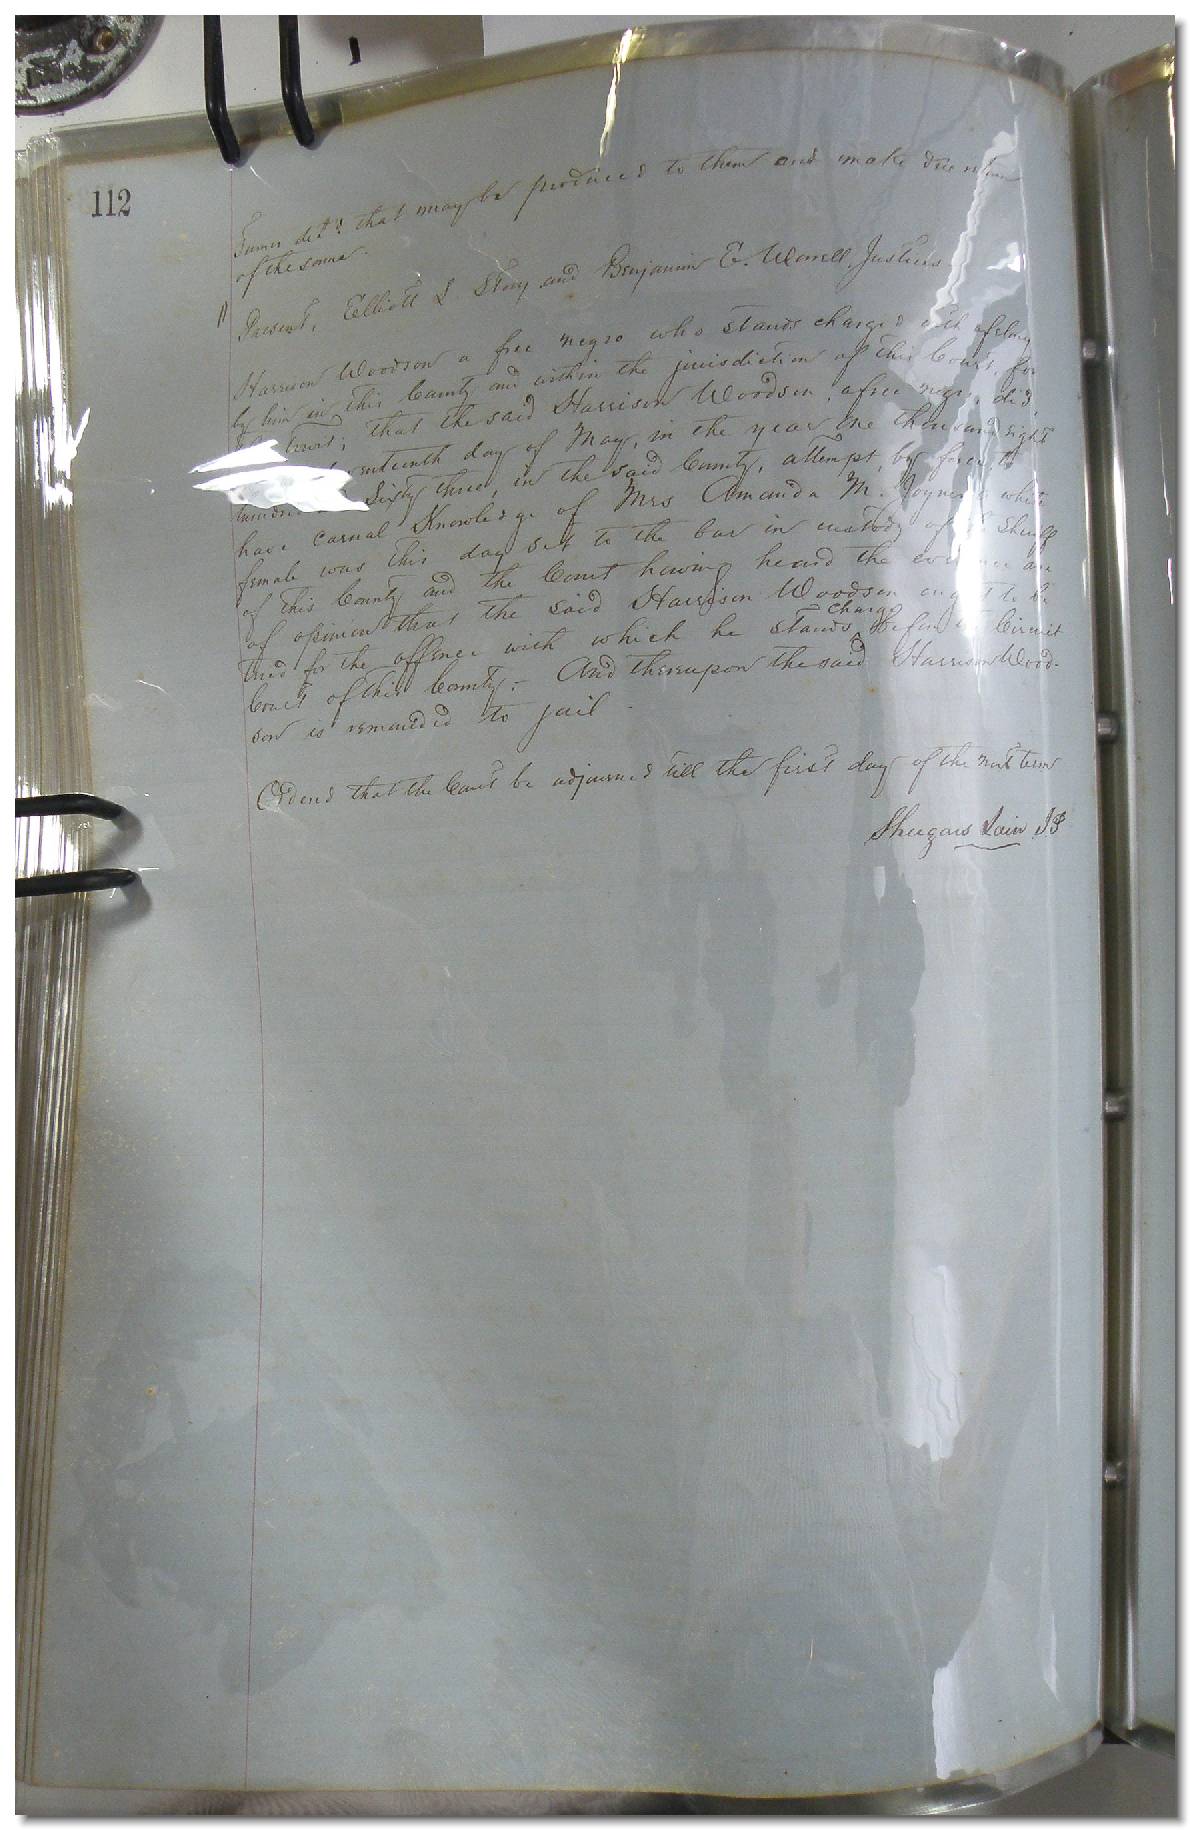 112
that may be produced to them and make due return
of the same.
Present, Elliott L. Story and Benjamin E. Worrell, Justices
Harrison Woodson a free negro who stands charged with a felony
by him in this County and within the jurisdiction of this Court, for
that the said Harrison Woodson, a free negro, did,
day of May, in the year one thousand eight
hundred Sixty three, in the said County, attempt, by force, to
have carnal Knowledge of Mrs Amanda M. Joyner a white
female was this day set to the bar in custody of the Sheriff
of this County and the Court having heard the evidence are
of opinion that the said Harrison Woodson ought to be
tried for the offence with which he stands charged before the Circuit
Court of this County:- And thereupon the said Harrison Wood-
son is remanded to jail -
Ordered that the Court be adjourned till the first day of the next term
Shugars Lain JP